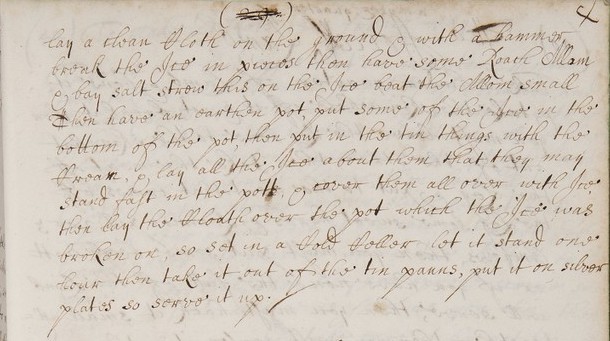 lay a clean Cloth on the ground & with a hammer
break the Ice in pieces then have some Roach Allom
& bay salt strew this on the Ice beat the Allom small
then have an earthen pot, put some of the Ice in the
bottom of the pot, then put in the tin things with the
Cream, & lay all the Ice about them that they may
stand fast in the pott, & cover them all over with Ice
then lay the Cloath over the pot which the Ice was
broken on, so set in a Cold Celler let it stand one
hour then take it out of the tin panns, put it on silver
plates so serve it up.